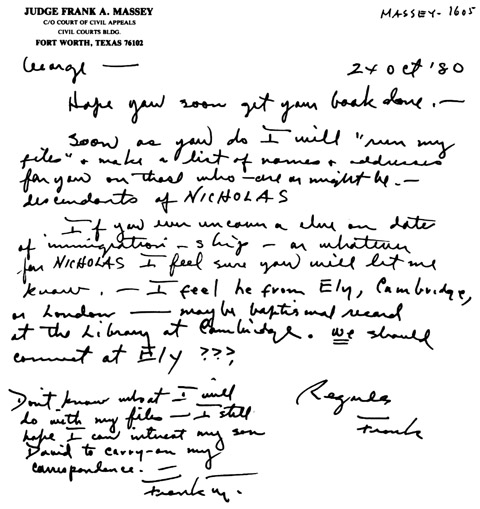 JUDGE FRANK A. MASSEY
C/O COURT OF CIVIL APPEALS
CIVIL COURTS BLDG.
FORT WORTH, TEXAS 76102
MASSEY-1605
George —
24 Oct '80
Hope you soon get your book done. —
Soon as you do I will "run my
files" & make a list of names & addresses
for you on those who — are or might be. —
descendants of NICHOLAS
If you ever uncover a clue on dates
of immigration — ship — or whatever
for NICHOLAS I feel sure you will let me
know. — I feel he from Ely, Cambridge,
or London — maybe baptismal record
at the Library at Cambridge. We should
connect at Ely ???,
Don't know what I will
do with my files — I still
hope I can interest my son
David to carry-on my
correspondence. —
Frank M.
Regards
Frank